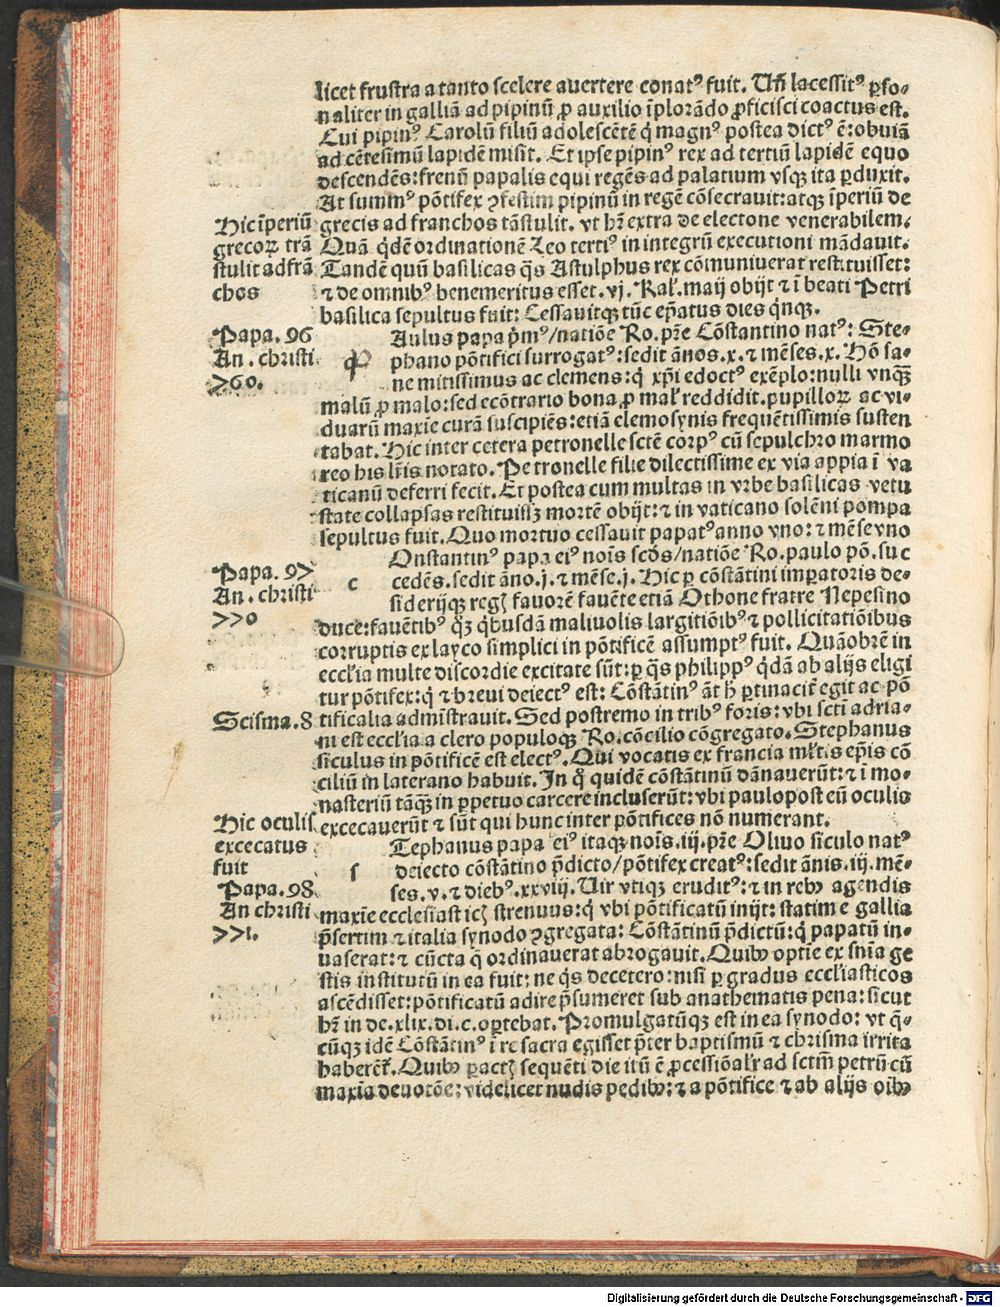 licet frustra a tanto scelere avertere conatꝰ fuit. Uñ lacessitꝰ ꝑso-
naliter in galliā ad pipinū ꝓ auxilio īplorādo ꝓficisci coactus est.
Cui pipinꝰ Carolū filiū adolescētē q̇ magnꝰ postea dictꝰ ē: obuiā
ad cētesimū lapidē misit. Et ipse pipinꝰ rex ad tertiū lapidē equo
descendēs: frenū papalis equi regēs ad palatium vsqꝫ ita ꝑduxit.
At summꝰ pōtifex ꝯfestim pipinū in regē cōsecrauit: atqꝫ īperiū de
grecis ad franchos tāstulit. vt hr̄ extra de electone venerabilem.
Quā q̇dē ordinationē Leo tertiꝰ in integrū executioni mādauit.
Tandē quū basilicas q̄s Astulphus rex cōmuniuerat restituisset:
⁊ de omnibꝰ benemeritus esset. vj. Kal̓. maij obijt ⁊ ī beati Petri
basilica sepultus fuit: Cessauitqꝫ tūc ep̄atus dies q̇nqꝫ.
Hic īperiū
grecoꝝ trā
stulit ad frā
chos
Papa. 96
An. christi
760.
p
Aulus papa p̄mꝰ/natiōe Ro. pr̄e Cōstantino natꝰ: Ste-
phano pōtifici surrogatꝰ: sedit ānos. x. ⁊ mēses. x. Hō sa-
ne mitissimus ac clemens: q̇ xp̄i edoctꝰ exēplo: nulli vnqꝫ̄
malū ꝓ malo: sed ecōtrario bona ꝓ mal̓ reddidit. pupilloꝝ ac vi-
duarū maxīe curā suscipiēs: etiā elemosynis frequētissimis susten
tabat. Hic inter cetera petronelle sctē corpꝰ cū sepulchro marmo
reo his lr̄is notato. Petronelle filie dilectissime ex via appia ī va
ticanū deferri fecit. Et postea cum multas in vrbe basilicas vetu
state collapsas restituissꝫ mortē obijt: ⁊ in vaticano solēni pompa
sepultus fuit. Quo mortuo cessauit papatꝰ anno vno: ⁊ mēse vno
Papa. 97
An. christi
770
c
Onstantinꝰ papa eiꝰ nois̄ scd̄s/natiōe Ro. paulo pō. suc
cedēs. sedit āno. j. ⁊ mēse. j. Hic ꝑ cōstātini imperatoris de-
siderijqꝫ regꝭ fauorē fauēte etiā Othone fratre Nepesino
duce: fauētibꝰ qꝫ̇ q̇busdā maliuolis largitiōibꝰ ⁊ pollicitatiōibus
corruptis ex layco simplici in pōtificē assumptꝰ fuit. Quāobrē in
eccl̓ia multe discordie excitate sūt: ꝑ q̄s philippꝰ q̇dā ab alijs eligi
tur pōtifex: q̇ ⁊ breui deiectꝰ est: Cōstātinꝰ āt h̓ ꝑtinacit̓ egit ac pō
tificalia admīstrauit. Sed postremo in tribꝰ foris: vbi scti adria-
ni est eccl̓ia a clero populoqꝫ Ro. cōcilio cōgregato. Stephanus
siculus in pōtificē est electꝰ. Qui vocatis ex francia ml̓tis ep̄is cō
ciliū in laterano habuit. In q̇ quidē cōstātinū dānauerūt: ⁊ ī mo-
nasteriū tāqꝫ in ꝑpetuo carcere incluserūt: vbi paulopost eū oculis
excecauerūt ⁊ sūt qui hunc inter pōtifices nō numerant.
Scisma. 8
Hic oculis
excecatus
fuit
Papa. 98
An christi
771.
s
Tephanus papa eiꝰ itaqꝫ nois̄. iij. pr̄e Oliuo siculo natꝰ
deiecto cōstātino p̄dicto/pōtifex creatꝰ: sedit ānis. iij. mē-
ses. v. ⁊ diebꝰ. xxviij. Uir vtiqꝫ eruditꝰ: ⁊ in rebꝰ agendis
maxīe ecclesiasticꝭ strenuus: q̇ vbi pōtificatū inijt: statim e gallia
p̄sertim ⁊ italia synodo ꝯgregata: Cōstātinū p̄dictū: q̇ papatū in-
uaserat: ⁊ cūcta q̄ ordinauerat abrogauit. Quibꝰ optīe ex snīa ge
stis institutū in ea fuit: ne q̇s decetero: nisi ꝑ gradus eccl̓iasticos
ascēdisset: pōtificatū adire p̄sumeret sub anathematis pena: sicut
hr̄ in de. xlix. di. c. oꝑtebat. Promulgatūqꝫ est in ea synodo: vt q̄-
cūqꝫ idē Cōstātinꝰ ī re sacra egisset p̄ter baptismū ⁊ chrisma irrita
haberēt̓. Quibꝰ ꝑactꝭ sequēti die itū ē ꝓcessiōal̓r ad sctm̄ petrū cū
maxīa deuotōe: videlicet nudis pedibꝰ: ⁊ a pōtifice ⁊ ab alijs oībꝰ
Digitalisierung gefördert durch die Deutsche Forschungsgemeinschaft - DFG